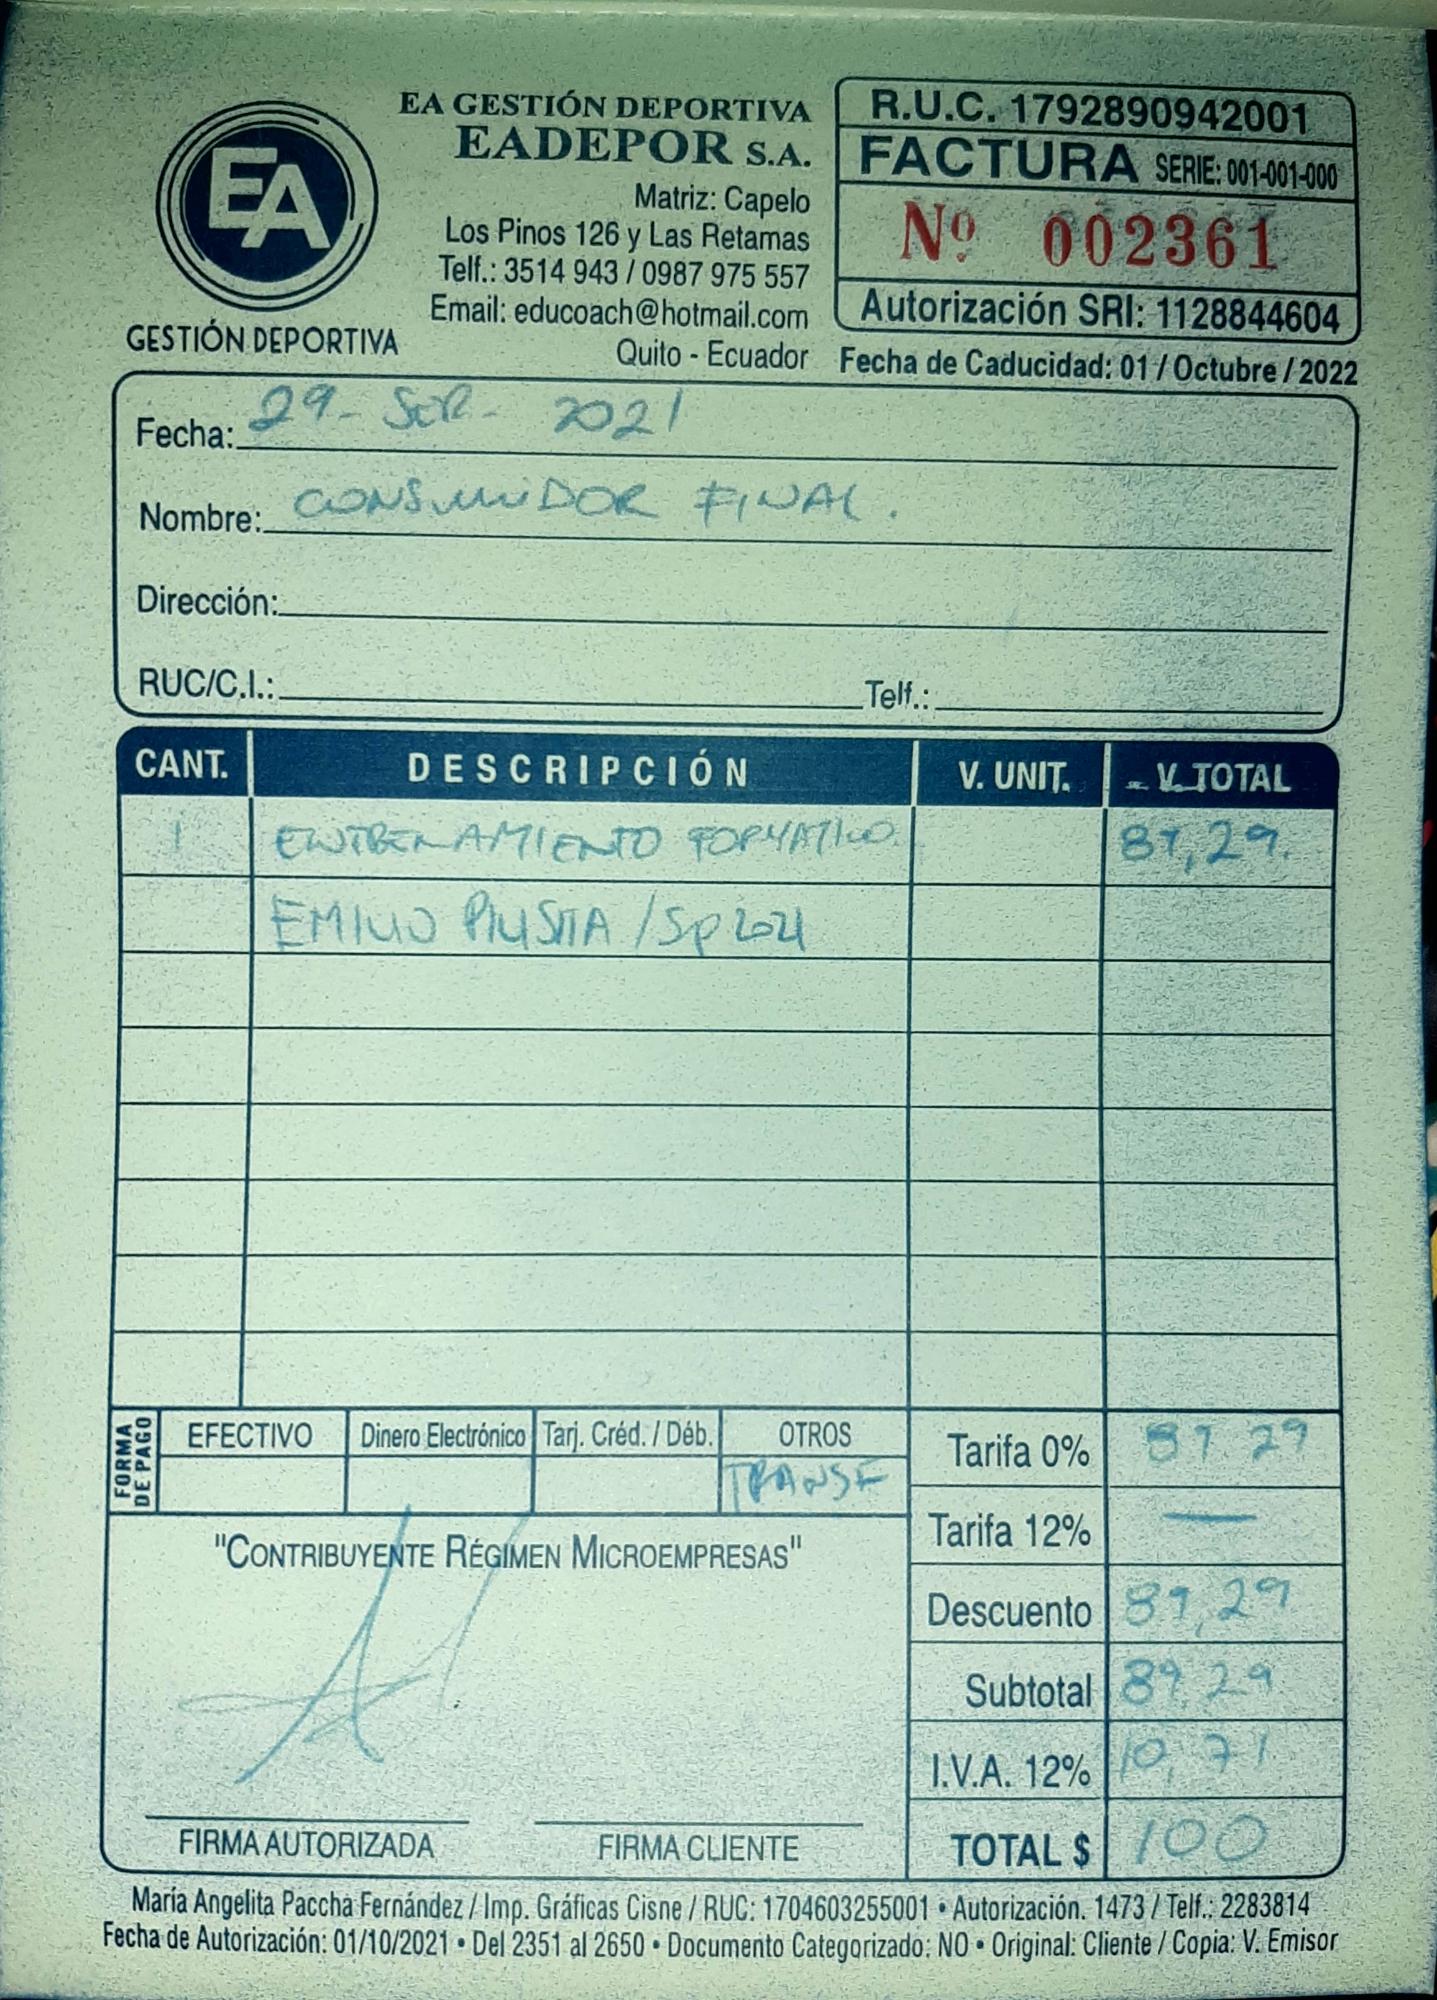 EA
GESTIÓN DEPORTIVA
EA GESTIÓN DEPORTIVA
EADEPOR S.A.
Matriz: Capelo
Los Pinos 126 y Las Retamas
Telf.: 3514 943 / 0987 975 557
Email: educoach@hotmail.com
Quito - Ecuador
R.U.C. 1792890942001
FACTURA SERIE: 001-001-000
Nº 002361
Autorización SRI: 1128844604
Fecha de Caducidad: 01 / Octubre / 2022
Fecha: 29- SEP- 2021
Nombre: CONSUMIDOR FINAL.
Dirección:
RUC/C.I.: Telf.:
CANT. DESCRIPCIÓN V. UNIT. V. TOTAL
1 ENTRENAMIENTO FORMATIVO 89,29.
EMILIO /Sp 2021
FORMA DE PAGO
EFECTIVO Dinero Electrónico Tarj. Créd. / Déb. OTROS
TRANSF
Tarifa 0% 89 29
Tarifa 12% —
Descuento 89,29
Subtotal 89,29
I.V.A. 12% 10,71
TOTAL $ 100
"CONTRIBUYENTE RÉGIMEN MICROEMPRESAS"
FIRMA AUTORIZADA FIRMA CLIENTE
María Angelita Paccha Fernández / Imp. Gráficas Cisne / RUC: 1704603255001 • Autorización. 1473 / Telf.: 2283814
Fecha de Autorización: 01/10/2021 • Del 2351 al 2650 • Documento Categorizado: NO • Original: Cliente / Copia: V. Emisor